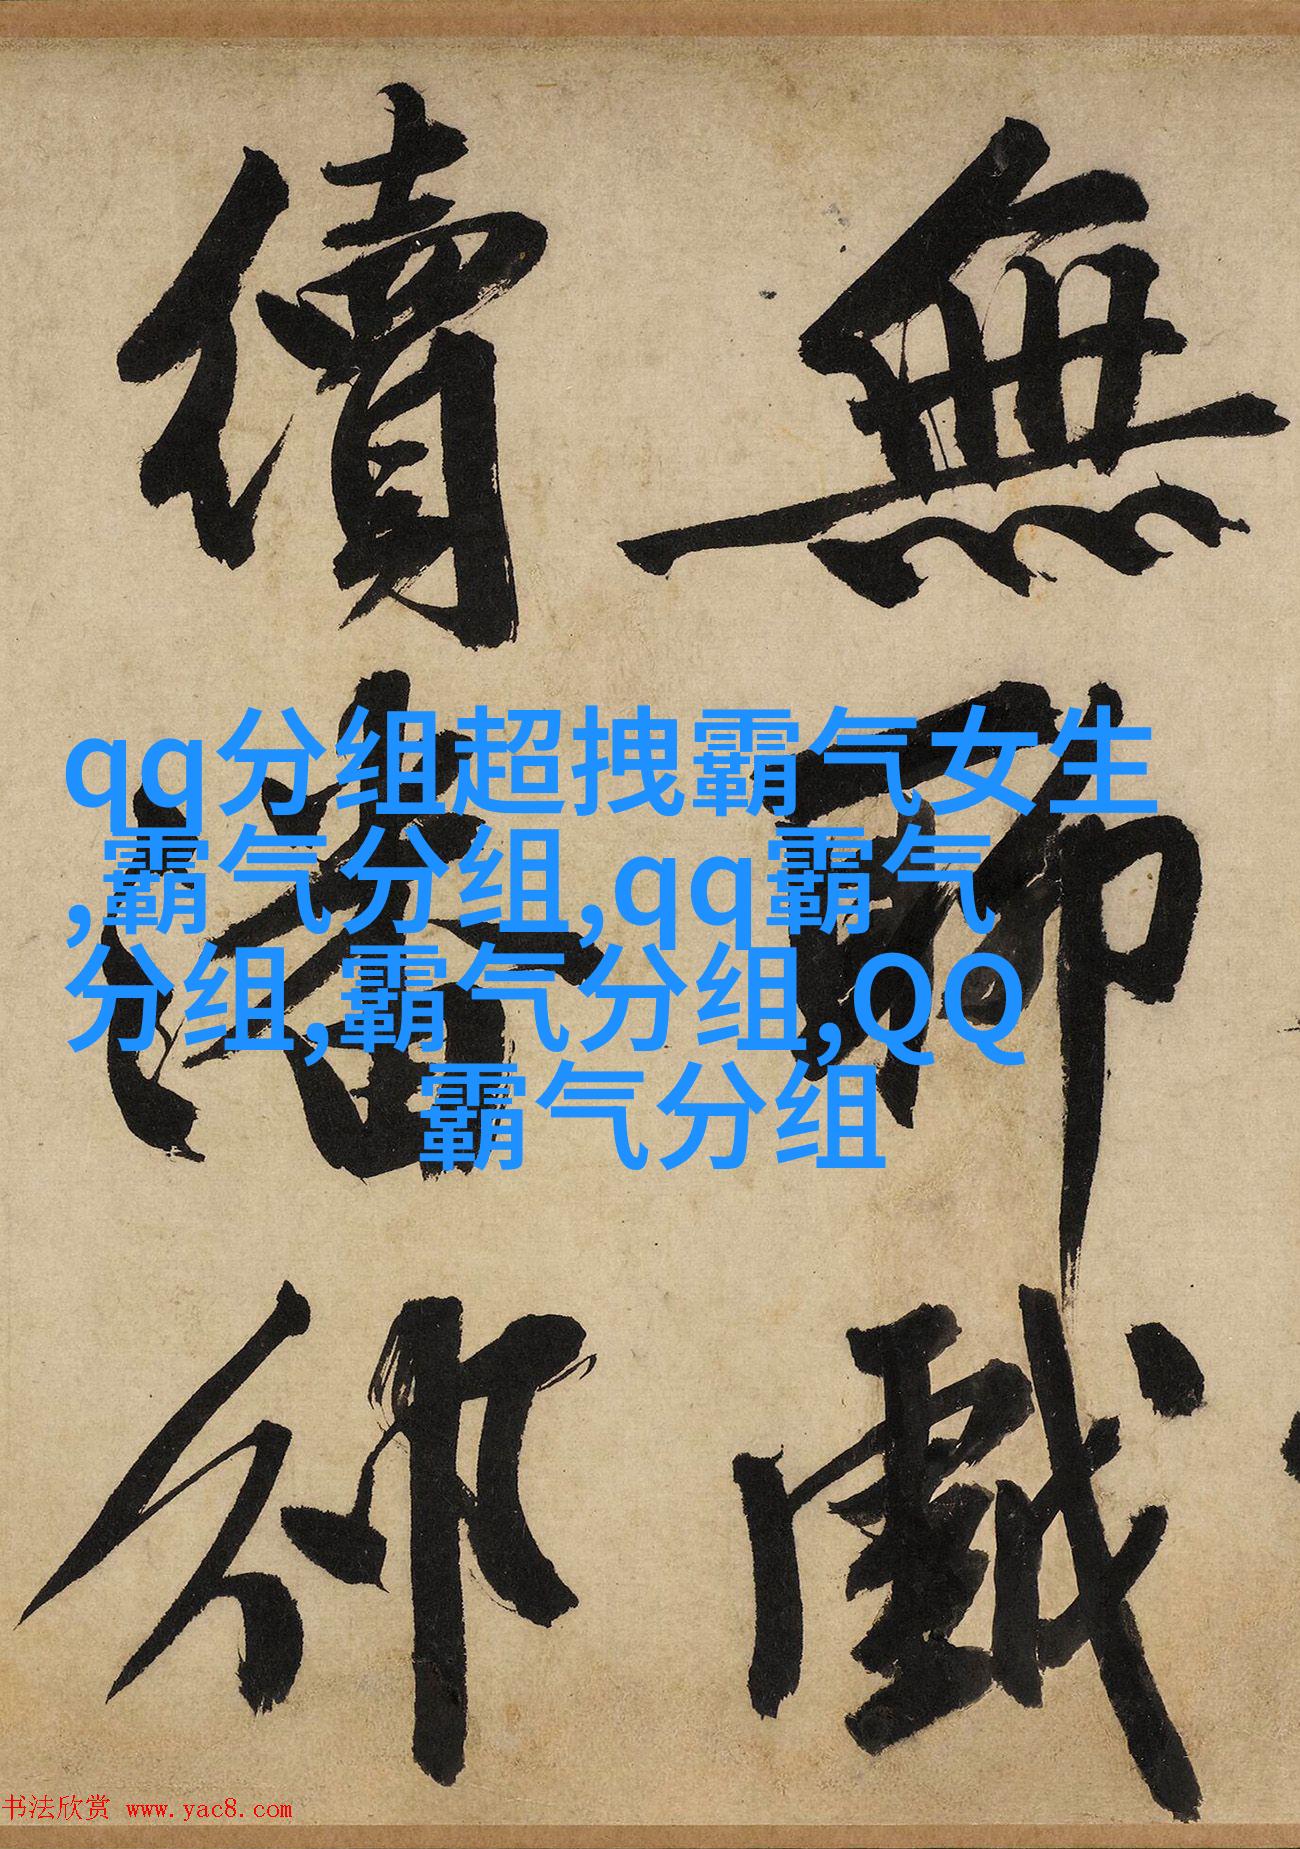 無聊戲
續潘邠
qq分组超拽霸气女生
,霸气分组,qq霸气
分组,霸气分组,QQ
霸气分组
书法欣赏 www.yac8.com